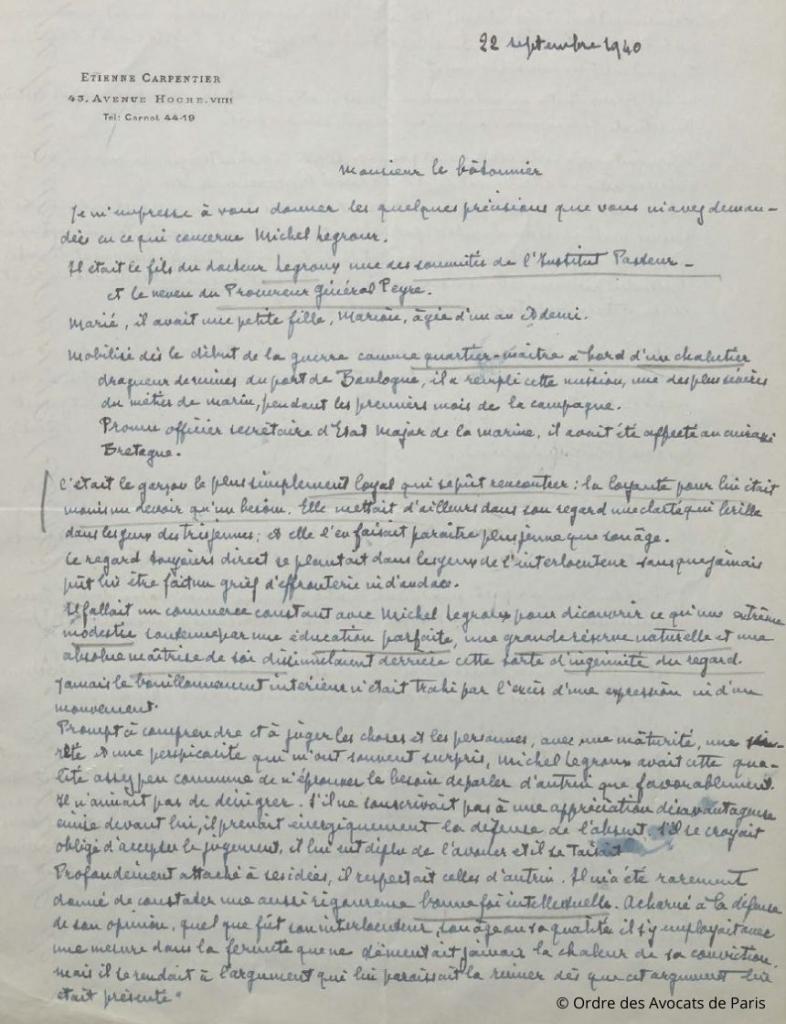 22 septembre 1940
ETIENNE CARPENTIER
43, AVENUE HOCHE. VIIIE
Tél: Carnot 44-19
Monsieur le bâtonnier
Je m'empresse à vous donner les quelques précisions que vous m'avez deman-
dées en ce qui concerne Michel Legroux.
Il était le fils du docteur Legroux une des sommités de l'Institut Pasteur -
et le neveu du Procureur Général Peyre.
Marié, il avait une petite fille, âgée d'un an et demi.
Mobilisé dès le début de la guerre comme quartier-maître à bord d'un chalutier
dragueur de mines du port de Boulogne, il a rempli cette mission, une des plus sévères
du métier de marin, pendant les premiers mois de la campagne.
Promu officier secrétaire d'Etat Major de la marine, il avait été affecté au cuirassé
Bretagne.
C'était le garçon le plus simplement loyal qui se pût rencontrer : la loyauté pour lui était
moins un devoir qu'un besoin. Elle mettait d'ailleurs dans son regard une clarté qui brille
dans les yeux des très jeunes; et elle l'en faisait paraître plus jeune que son âge.
Ce regard toujours direct se plantait dans les yeux de l'interlocuteur sans que jamais
pût lui être fait un grief d'effronterie ni d'audace.
Il fallait un commerce constant avec Michel Legroux pour découvrir ce qu'une extrême
modestie soutenue par une éducation parfaite, une grande réserve naturelle et une
absolue maîtrise de soi dissimulaient derrière cette sorte d'ingénuité du regard.
Jamais le bouillonnement intérieur n'était trahi par l'excès d'une expression ni d'un
mouvement.
Prompt à comprendre et à juger les choses et les personnes, avec une maturité, une sûr-
eté et une perspicacité qui m'ont souvent surpris, Michel Legroux avait cette qua-
lité assez peu commune de n'éprouver le besoin de parler d'autrui que favorablement.
Il n'aimait pas de dénigrer. S'il ne souscrivait pas à une appréciation désavantageuse
émise devant lui, il prenait énergiquement la défense de l'absent. S'il se croyait
obligé d'accepter le jugement, il lui eut déplu de l'avouer et il se taisait
Profondément attaché à ses idées, il respectait celles d'autrui. Il m'a été rarement
donné de constater une aussi rigoureuse bonne foi intellectuelle. Acharné à la défense
de son opinion, quel que fût son interlocuteur, son âge ou sa qualité il s'y employait avec
une mesure dans la fermeté que ne démentait jamais la chaleur de sa conviction.
mais il se rendait à l'argument qui lui paraissait la ruiner dès que cet argument lui
était présenté.
© Ordre des Avocats de Paris